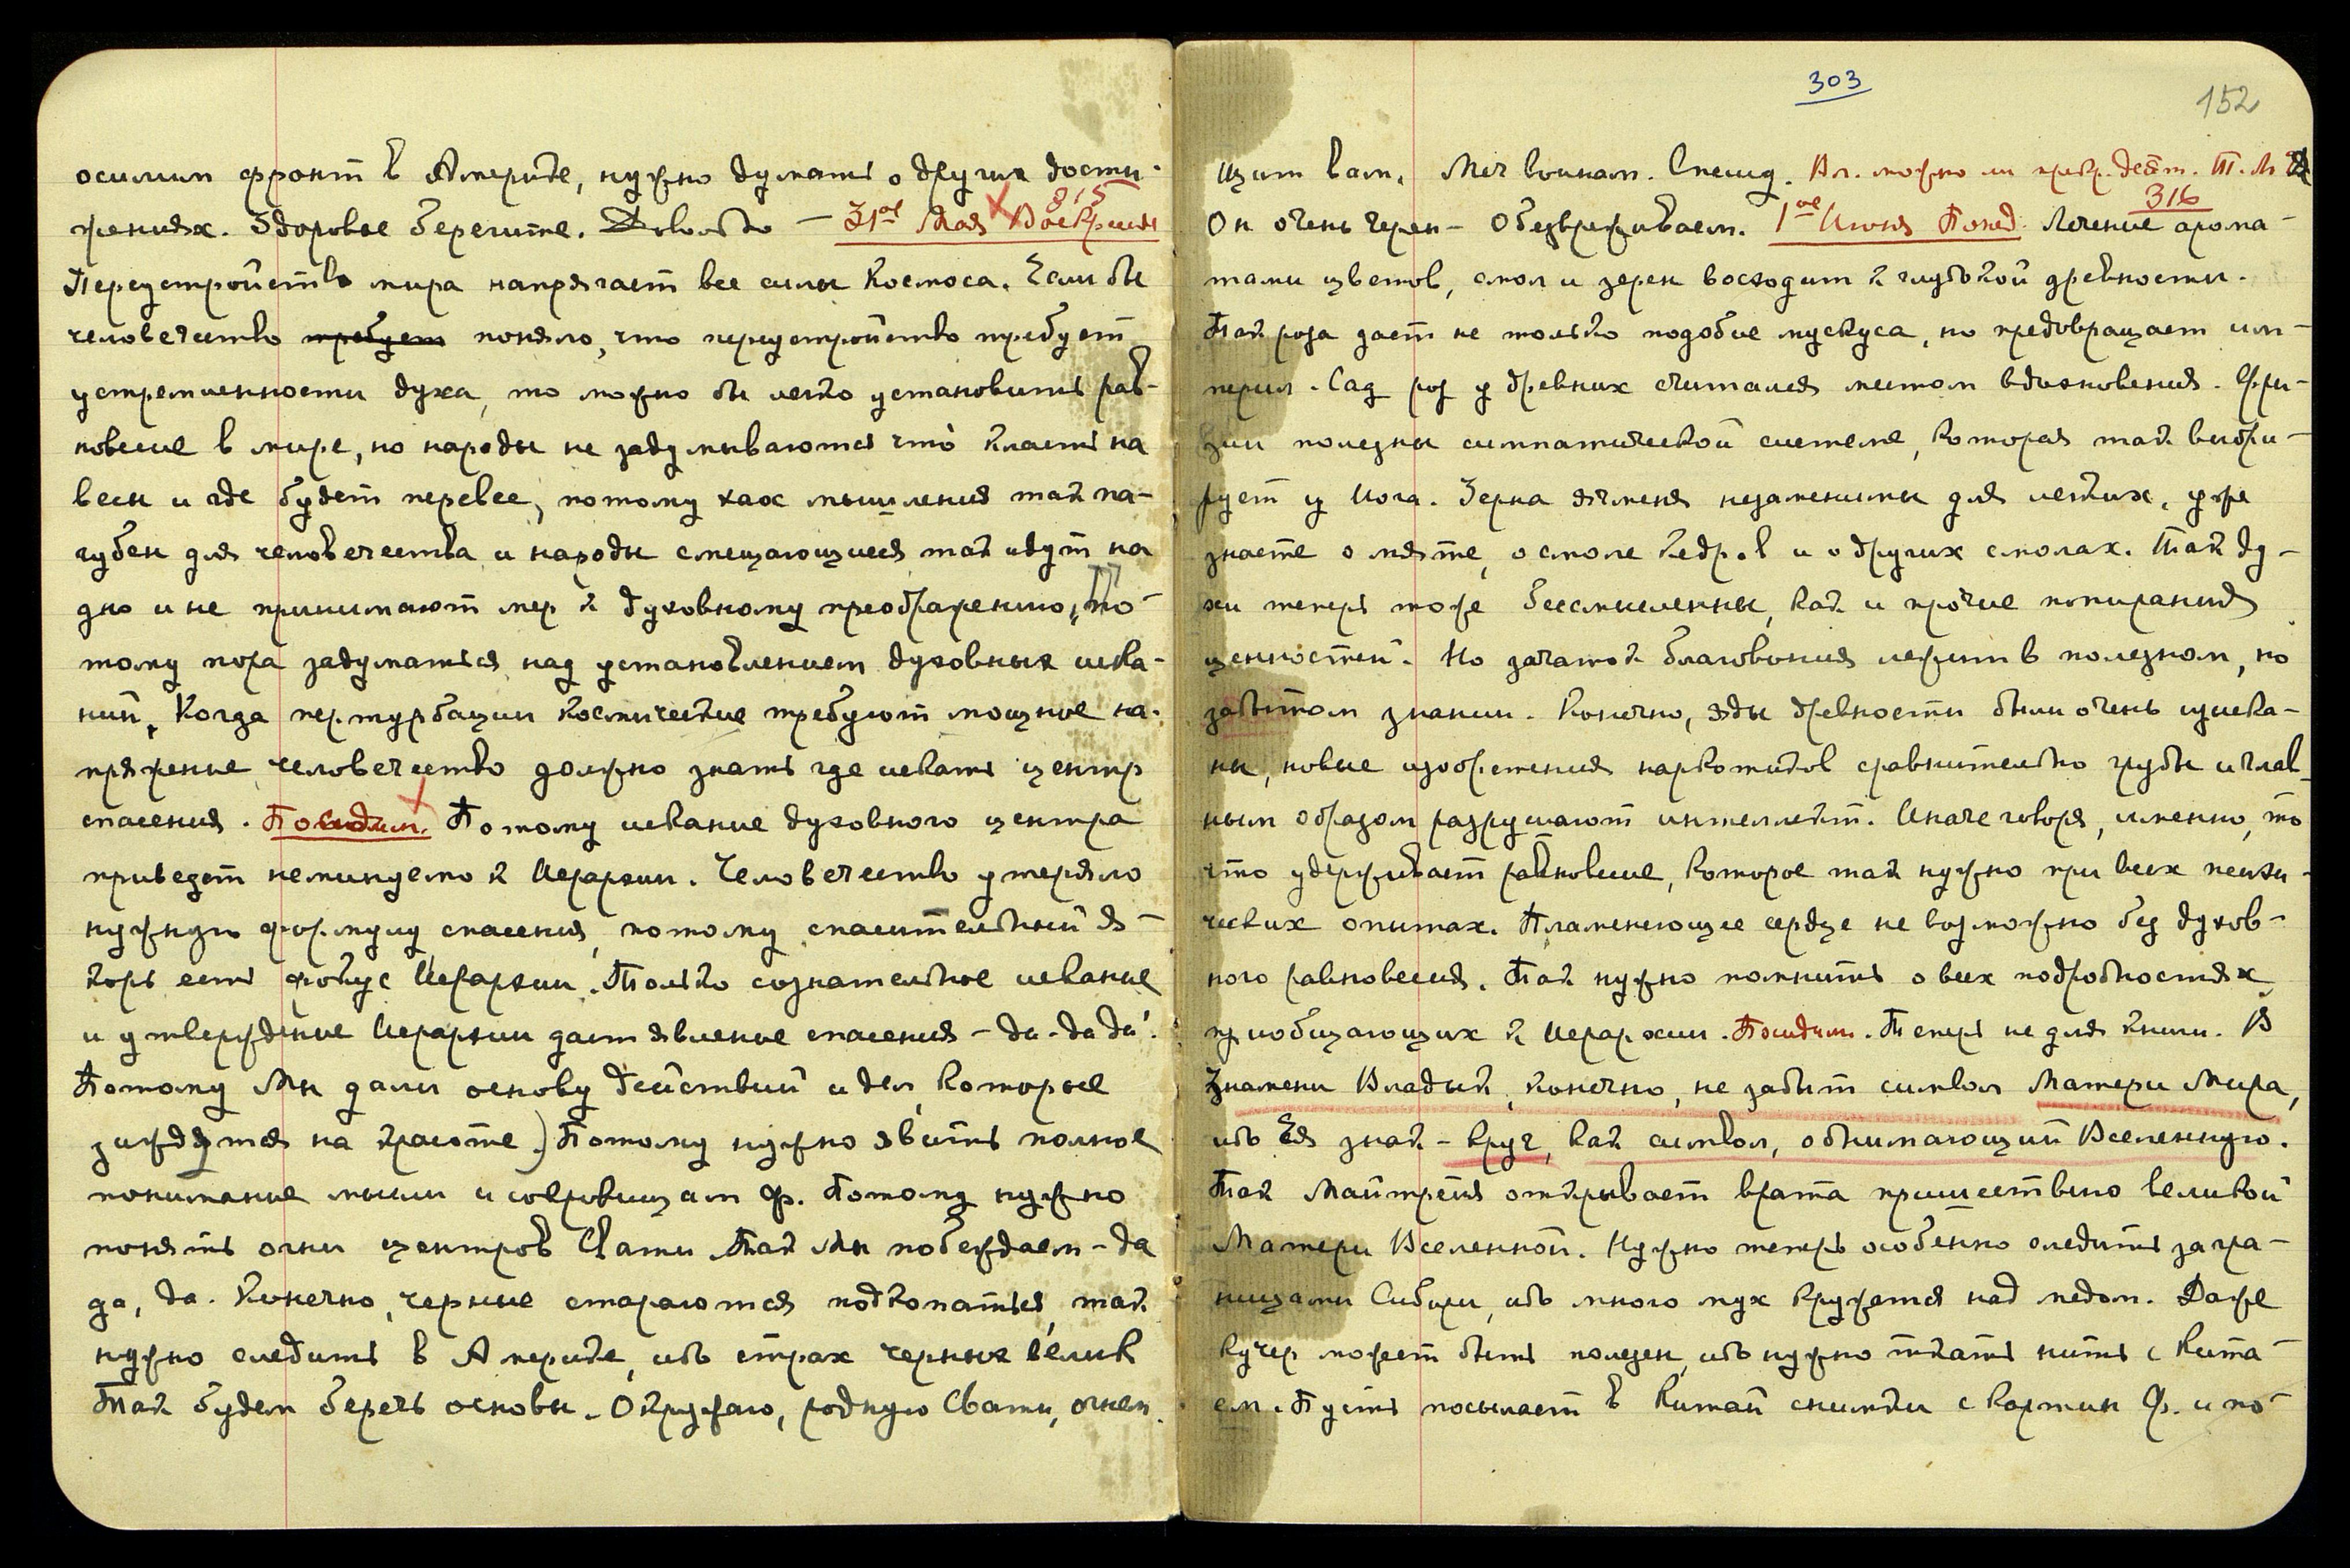 осилим фронт в Америке, нужно думать о других дости-
315
жениях. Здоровье берегите. Довольно — 31ое Мая Воскресен
Переустройство мира напрягает все силы Космоса. Если бы
человечество требует поняло, что переустройство требует
устремленности духа, то можно бы легко установить рав-
новесие в мире, но народы не задумываются что класть на
весы и где будет перевес, потому хаос мышления так па-
губен для человечества и народы смещающиеся так идут на
дно и не принимают мер к духовному преображению, По-
тому пора задуматься над установлением духовных иска-
ний. Когда пертурбации космические требуют мощное на-
пряжение человечество должно знать где искать центр
спасения. Посидим. Потому искание духовного центра
приведет неминуемо к Иерархии. Человечество утеряло
нужную формулу спасения, потому спасительный я-
корь есть фокус Иерархии. Только сознательное искание
и утверждение Иерархии дает явление спасения — да-да-да!
Потому Мы дали основу действий и дел, которые
зиждятся на красоте.) Потому нужно явить полное
понимание мысли и сокровищам Ф. Потому нужно
понять огни центров Свати. Так Мы побеждаем — да
да, да. Конечно, черные стараются подкопаться, так
нужно следить в Америке, ибо страх черных велик
Так будем беречь основы. Окружаю, родную Свати, огнем.
303
152
Щит вам, Меч воинам. Спешу. Вл. можно ли
316
Он очень черен — Обезвреживаем. 1ое Июня Понед. Лечение арома-
тами цветов, смол и зерен восходит к глубокой древности.
Так роза дает не только подобие мускуса, но предовращает им-
перил. Сад роз у древних считался местом вдохновения. Фре-
зии полезны симпатической системе, которая так вибри-
рует у Йога. Зерна ячменя незаменимы для легких, уже
знаете о мяте, о смоле кедров и о других смолах. Так ду-
хи теперь тоже бессмысленны, как и прочие попирания
ценностей. Но зачаток благовония лежит в полезном, но
забытом знании. Конечно, яды древности были очень изыска-
ны, новые изобретения наркотиков сравнительно грубы и глав-
ным образом разрушают интеллект. Иначе говоря, именно, то
что удерживает равновесие, которое так нужно при всех психи-
ческих опытах. Пламенеющее сердце не возможно без духов-
ного равновесия. Так нужно помнить о всех подробностях
приобщающих к Иерархии. Посидим. Теперь не для книги. В
Знамени Владык, конечно, не забыт символ Матери Мира,
ибо Ея знак — круг, как символ, обнимающий Вселенную.
Так Майтрейя открывает врата пришествию великой
Матери Вселенной. Нужно теперь особенно следить за гра-
ницами Сибири, ибо много мух кружется над медом. Даже
Кучер может быть полезен, ибо нужно ткать нить с Кита-
ем. Пусть посылает в Китай снимки с картин Ф. и по-